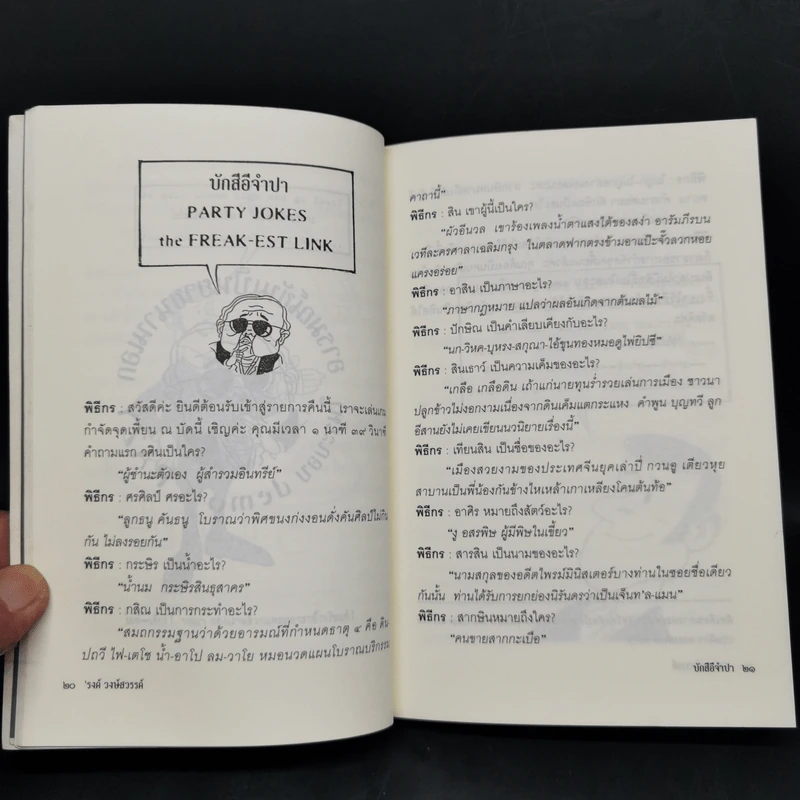 บักสีอีจำปา
PARTY JOKES
the FREAK-EST LINK
พิธีกร : สวัสดีค่ะ ยินดีต้อนรับเข้าสู่รายการคืนนี้ เราจะเล่นเกม
กำจัดจุดเพี้ยน ณ บัดนี้ เชิญค่ะ คุณมีเวลา ๑ นาที ๓๙ วินาที
คำถามแรก วศินเป็นใคร?
“ผู้ชำนะตัวเอง ผู้สำรวมอินทรีย์”
พิธีกร : ศรศิลป์ ศรอะไร?
“ลูกธนู คันธนู โบราณว่าพิศขนงก่งงอนดั่งคันศิลป์ไม่กิน
กัน ไม่ลงรอยกัน”
พิธีกร : กระษิร เป็นน้ำอะไร?
“น้ำนม กระษิรสินธุสาคร”
พิธีกร : กสิณ เป็นการกระทำอะไร?
“สมถกรรมฐานว่าด้วยอารมณ์ที่กำหนดธาตุ ๔ คือ ดิน
ปถวี ไฟ-เตโช น้ำ-อาโป ลม-วาโย หมอนวดแผนโบราณบริกรรม
๒๐ 'รงค์ วงษ์สวรรค์
คาถานี้”
พิธีกร : สิน เขาผู้นี้เป็นใคร?
“ผัวอีนวล เขาร้องเพลงน้ำตาแสงไต้ของสง่า อารัมภีรบน
เวทีละครศาลาเฉลิมกรุง ในตลาดฟากตรงข้ามอาแป๊ะจั๊วลวกหอย
แครงอร่อย”
พิธีกร : อาสิน เป็นภาษาอะไร?
“ภาษากฎหมาย แปลว่าผลอันเกิดจากต้นผลไม้”
พิธีกร : ปักษิณ เป็นคำเลียบเคียงกับอะไร?
“นก-วิหค-บุหรง-สกุณา-ไอ้ขุนทองหมอดูไพ่ยิปซี”
พิธีกร : สินเธาว์ เป็นความเค็มของอะไร?
“เกลือ เกลือดิน เถ้าแก่นายทุนร่ำรวยเล่นการเมือง ชาวนา
ปลูกข้าวไม่งอกงามเนื่องจากดินเค็มแตกระแหง คำพูน บุญทวี ลูก
อีสานยังไม่เคยเขียนนวนิยายเรื่องนี้”
พิธีกร : เทียนสิน เป็นชื่อของอะไร?
“เมืองสวยงามของประเทศจีนยุคเล่าปี่ กวนอู เตียวหุย
สาบานเป็นพี่น้องกันข้างไหเหล้าเกาเหลียงโคนต้นท้อ”
พิธีกร : อาศิร หมายถึงสัตว์อะไร?
“งู อสรพิษ ผู้มีพิษในเขี้ยว”
พิธีกร : สารสิน เป็นนามของอะไร?
“นามสกุลของอดีตไพรม์มินิสเตอร์บางท่านในซอยชื่อเดียว
กันนั้น ท่านได้รับการยกย่องนิรันดรว่าเป็นเจ็นท'ล-แมน”
พิธีกร : สากษินหมายถึงใคร?
“คนขายสากกะเบือ”
บักสีอีจำปา ๒๑